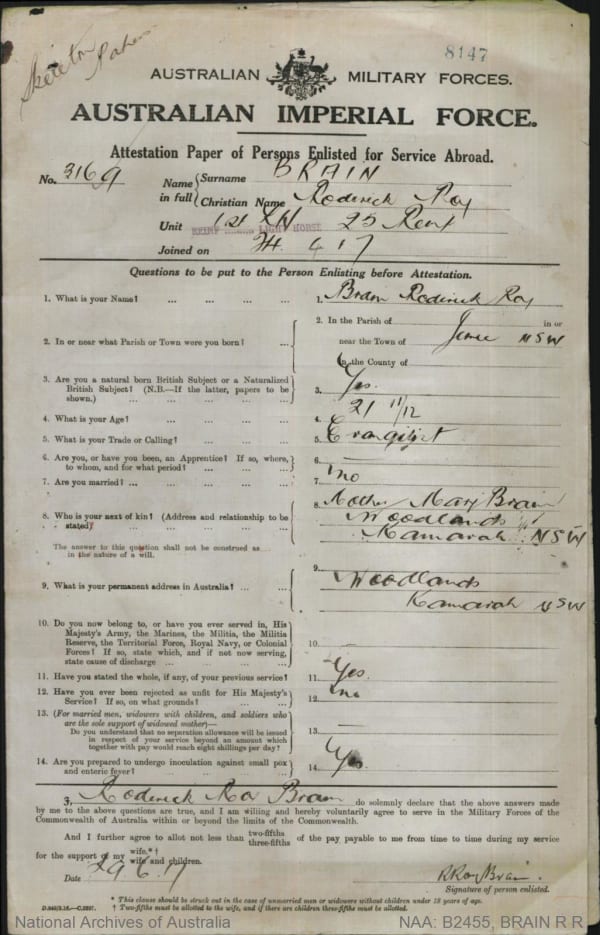 Skeleton Papers
8147
AUSTRALIAN MILITARY FORCES.
AUSTRALIAN IMPERIAL FORCE.
Attestation Paper of Persons Enlisted for Service Abroad.
No. 3169
Name in full { Surname BRAIN
Christian Name Roderick Roy
Unit LIGHT HORSE
Joined on 4 17
Questions to be put to the Person Enlisting before Attestation.
1. What is your Name? ... ... ... ... 1. Brain Roderick Roy
2. In or near what Parish or Town were you born? ... 2. In the Parish of in or
near the Town of NSW
In the County of
3. Are you a natural born British Subject or a Naturalized
British Subject? (N.B.—If the latter, papers to be
shown.) ... ... ... ... 3. Yes.
4. What is your Age? ... ... ... ... 4. 21 11/12
5. What is your Trade or Calling? ... ... ... 5. Evangelist
6. Are you, or have you been, an Apprentice? If so, where,
to whom, and for what period? ... ... ... 6. —
7. Are you married? ... ... ... ... 7. no
8. Who is your next of kin? (Address and relationship to be
stated) 8. Mother Mary Brain
Woodlands
Kamarah NSW
The answer to this question shall not be construed as
in the nature of a will.
9. What is your permanent address in Australia? ... ... 9. Woodlands
Kamarah NSW
10. Do you now belong to, or have you ever served in, His
Majesty's Army, the Marines, the Militia, the Militia
Reserve, the Territorial Force, Royal Navy, or Colonial
Forces? If so, state which, and if not now serving,
state cause of discharge ... ... ... 10. —
11. Have you stated the whole, if any, of your previous service? 11. Yes.
12. Have you ever been rejected as unfit for His Majesty's
Service? If so, on what grounds? ... ... 12. no
13. (For married men, widowers with children, and soldiers who
are the sole support of widowed mother)—
Do you understand that no separation allowance will be issued
in respect of your service beyond an amount which
together with pay would reach eight shillings per day? 13. —
14. Are you prepared to undergo inoculation against small pox
and enteric fever? ... ... ... 14. Yes.
I, Roderick Roy Brain do solemnly declare that the above answers made
by me to the above questions are true, and I am willing and hereby voluntarily agree to serve in the Military Forces of the
Commonwealth of Australia within or beyond the limits of the Commonwealth.
And I further agree to allot not less than two-fifths three-fifths of the pay payable to me from time to time during my service
for the support of my wife.*† wife and children.
Date 29 6 17 R Roy Brain.
Signature of person enlisted.
* This clause should be struck out in the case of unmarried men or widowers without children under 18 years of age.
† Two-fifths must be allotted to the wife, and if there are children three-fifths must be allotted.
National Archives of Australia NAA: B2455, BRAIN R R